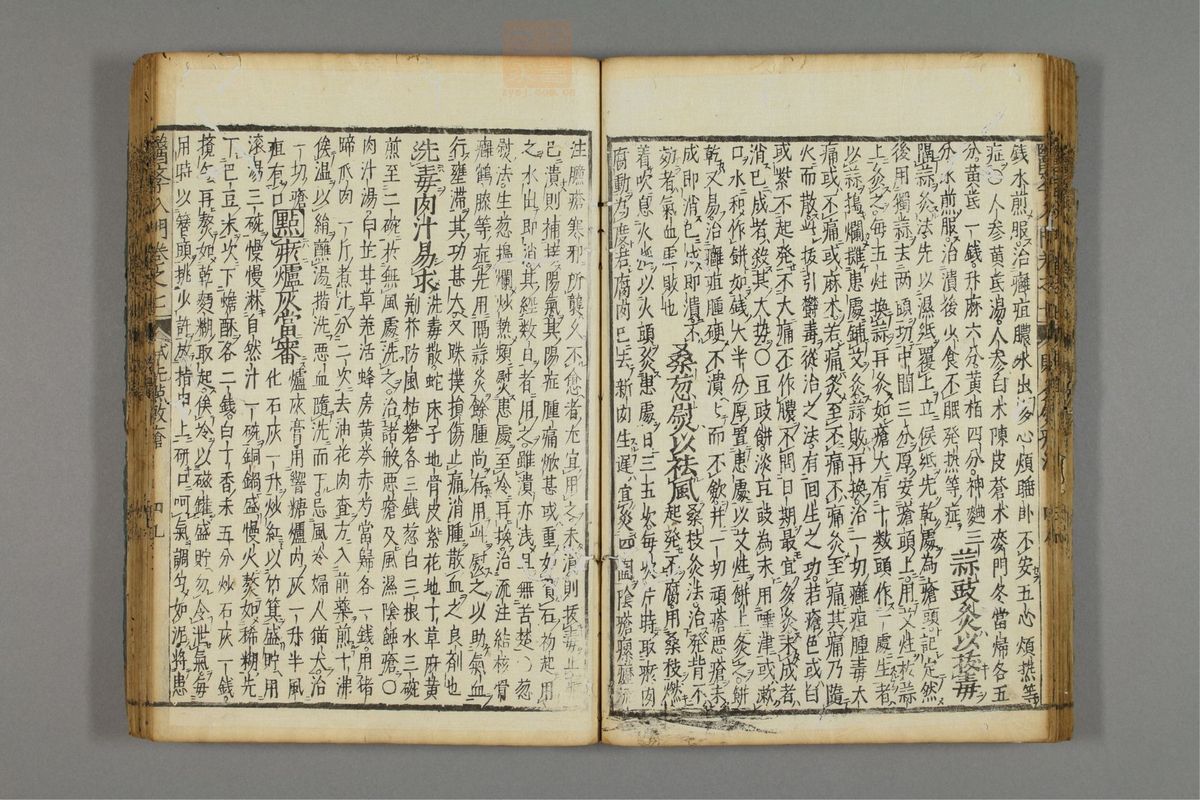 錢水煎服。治癰疽膿水出多心煩睡卧不安五心煩熱等
症○人參黃芪湯。人參白术陳皮蒼术麥門冬當歸各五
分黃芪一錢升麻六分黃栢四分神麯三
分水煎服。治潰後少食不眠発熱等症。 蒜豉灸以拔毒
隔蒜灸法先以濕紙覆上立候紙先乾處為瘡頭記定然
後用獨蒜去兩頭切中間三分厚安瘡頭上用艾炷於蒜
上灸之每五炷換蒜再灸如瘡大有十數頭作一處生者
以蒜搗爛攤患處鋪艾灸蒜敗再換治一切癰疽腫毒大
痛或不痛或麻木若痛灸至不痛不痛灸至痛其痛乃隨
火而散此拔引欝毒從治之法有回生之功若瘡色或白
或紫不起發不大痛不作膿不問日期最宜多灸未成者
消已成者殺其大势○豆豉餅淡豆豉為末用唾津或漱
口水和作餅如錢大半分厚置患處以艾炷餅上灸之餅
乾又易治癰疽腫硬不潰潰而不歛并一切頑瘡悪瘡未
成即消已成即潰 桑葱熨以袪風 桑枝灸法治発背不
起発不腐用桑枝燃
着吹息火焰以火頭灸患處日三五次每次片時取瘀肉
腐動為度若腐肉已去新肉生遲宜灸四圍陰瘡瘰癧流
注臁瘡寒邪所襲久不愈者尤宜用之未潰則拔毒止痛
已潰則補接陽氣其陽症腫痛焮甚或重如負石初起用
之水出即消其經數日者用之雖潰亦浅且無苦楚○葱
熨法生葱搗爛炒熱頻熨患處至冷再換治流注結核骨
癰鶴膝等症先用隔蒜灸餘腫尚存用此熨之以助氣血
行壅滯其功甚大又跌撲損傷止痛消腫散血之良剤也
洗毒肉汁易求 洗毒散蛇床子地骨皮紫花地丁草麻黄
荆芥防風枯礬各三銭葱白三根水三碗
煎至二碗於無風處洗之治諸般悪瘡及風濕陰蝕瘡○
肉汁湯白芷甘草羌活蜂房黄芩赤芍當歸各一錢用猪
蹄爪肉一斤煮汁分二次去油花肉査方入前藥煎十沸
候温以絹蘸湯揩洗悪血隨洗而下忌風冷婦人猫犬治
一切瘡
疽有口 點瘀爐灰當審 爐灰膏用響糖爐内灰一升半風
化石灰一升炒紅以竹箕盛貯用
滚湯三碗慢慢淋自然汁一碗銅鍋盛慢火熬如稀糊先
丁巴豆末次下蟾酥各二錢白丁香末五分炒石灰一錢
攪勻再熬如乾麵糊取起候冷以磁鑵盛貯勿令泄氣每
用時以簪頭挑少許放指甲上研口呵氣調匀如泥將患